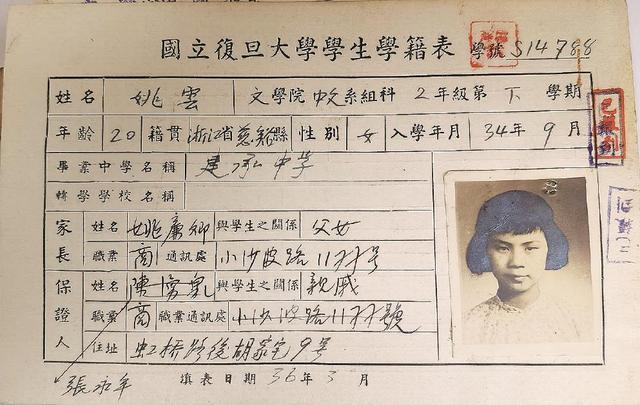 國立復旦大學學生學籍表 學號 S14788
姓名 姚雲 文學院 中文系組科 2年級第下學期
年齡 20 籍貫 浙江省慈谿縣 性別 女 入學年月 34年9月
畢業中學名稱 建承中學
轉學學校名稱
家長 姓名 姚廣卿 與學生之關係 父女
職業 商 通訊處 小沙渡路 號
保證人 姓名 陳 泉 與學生之關係 親戚
職業 商 職業通訊處 小沙渡路 號
住址 虹橋路後胡家宅9号
張永年 填表日期 36年3月